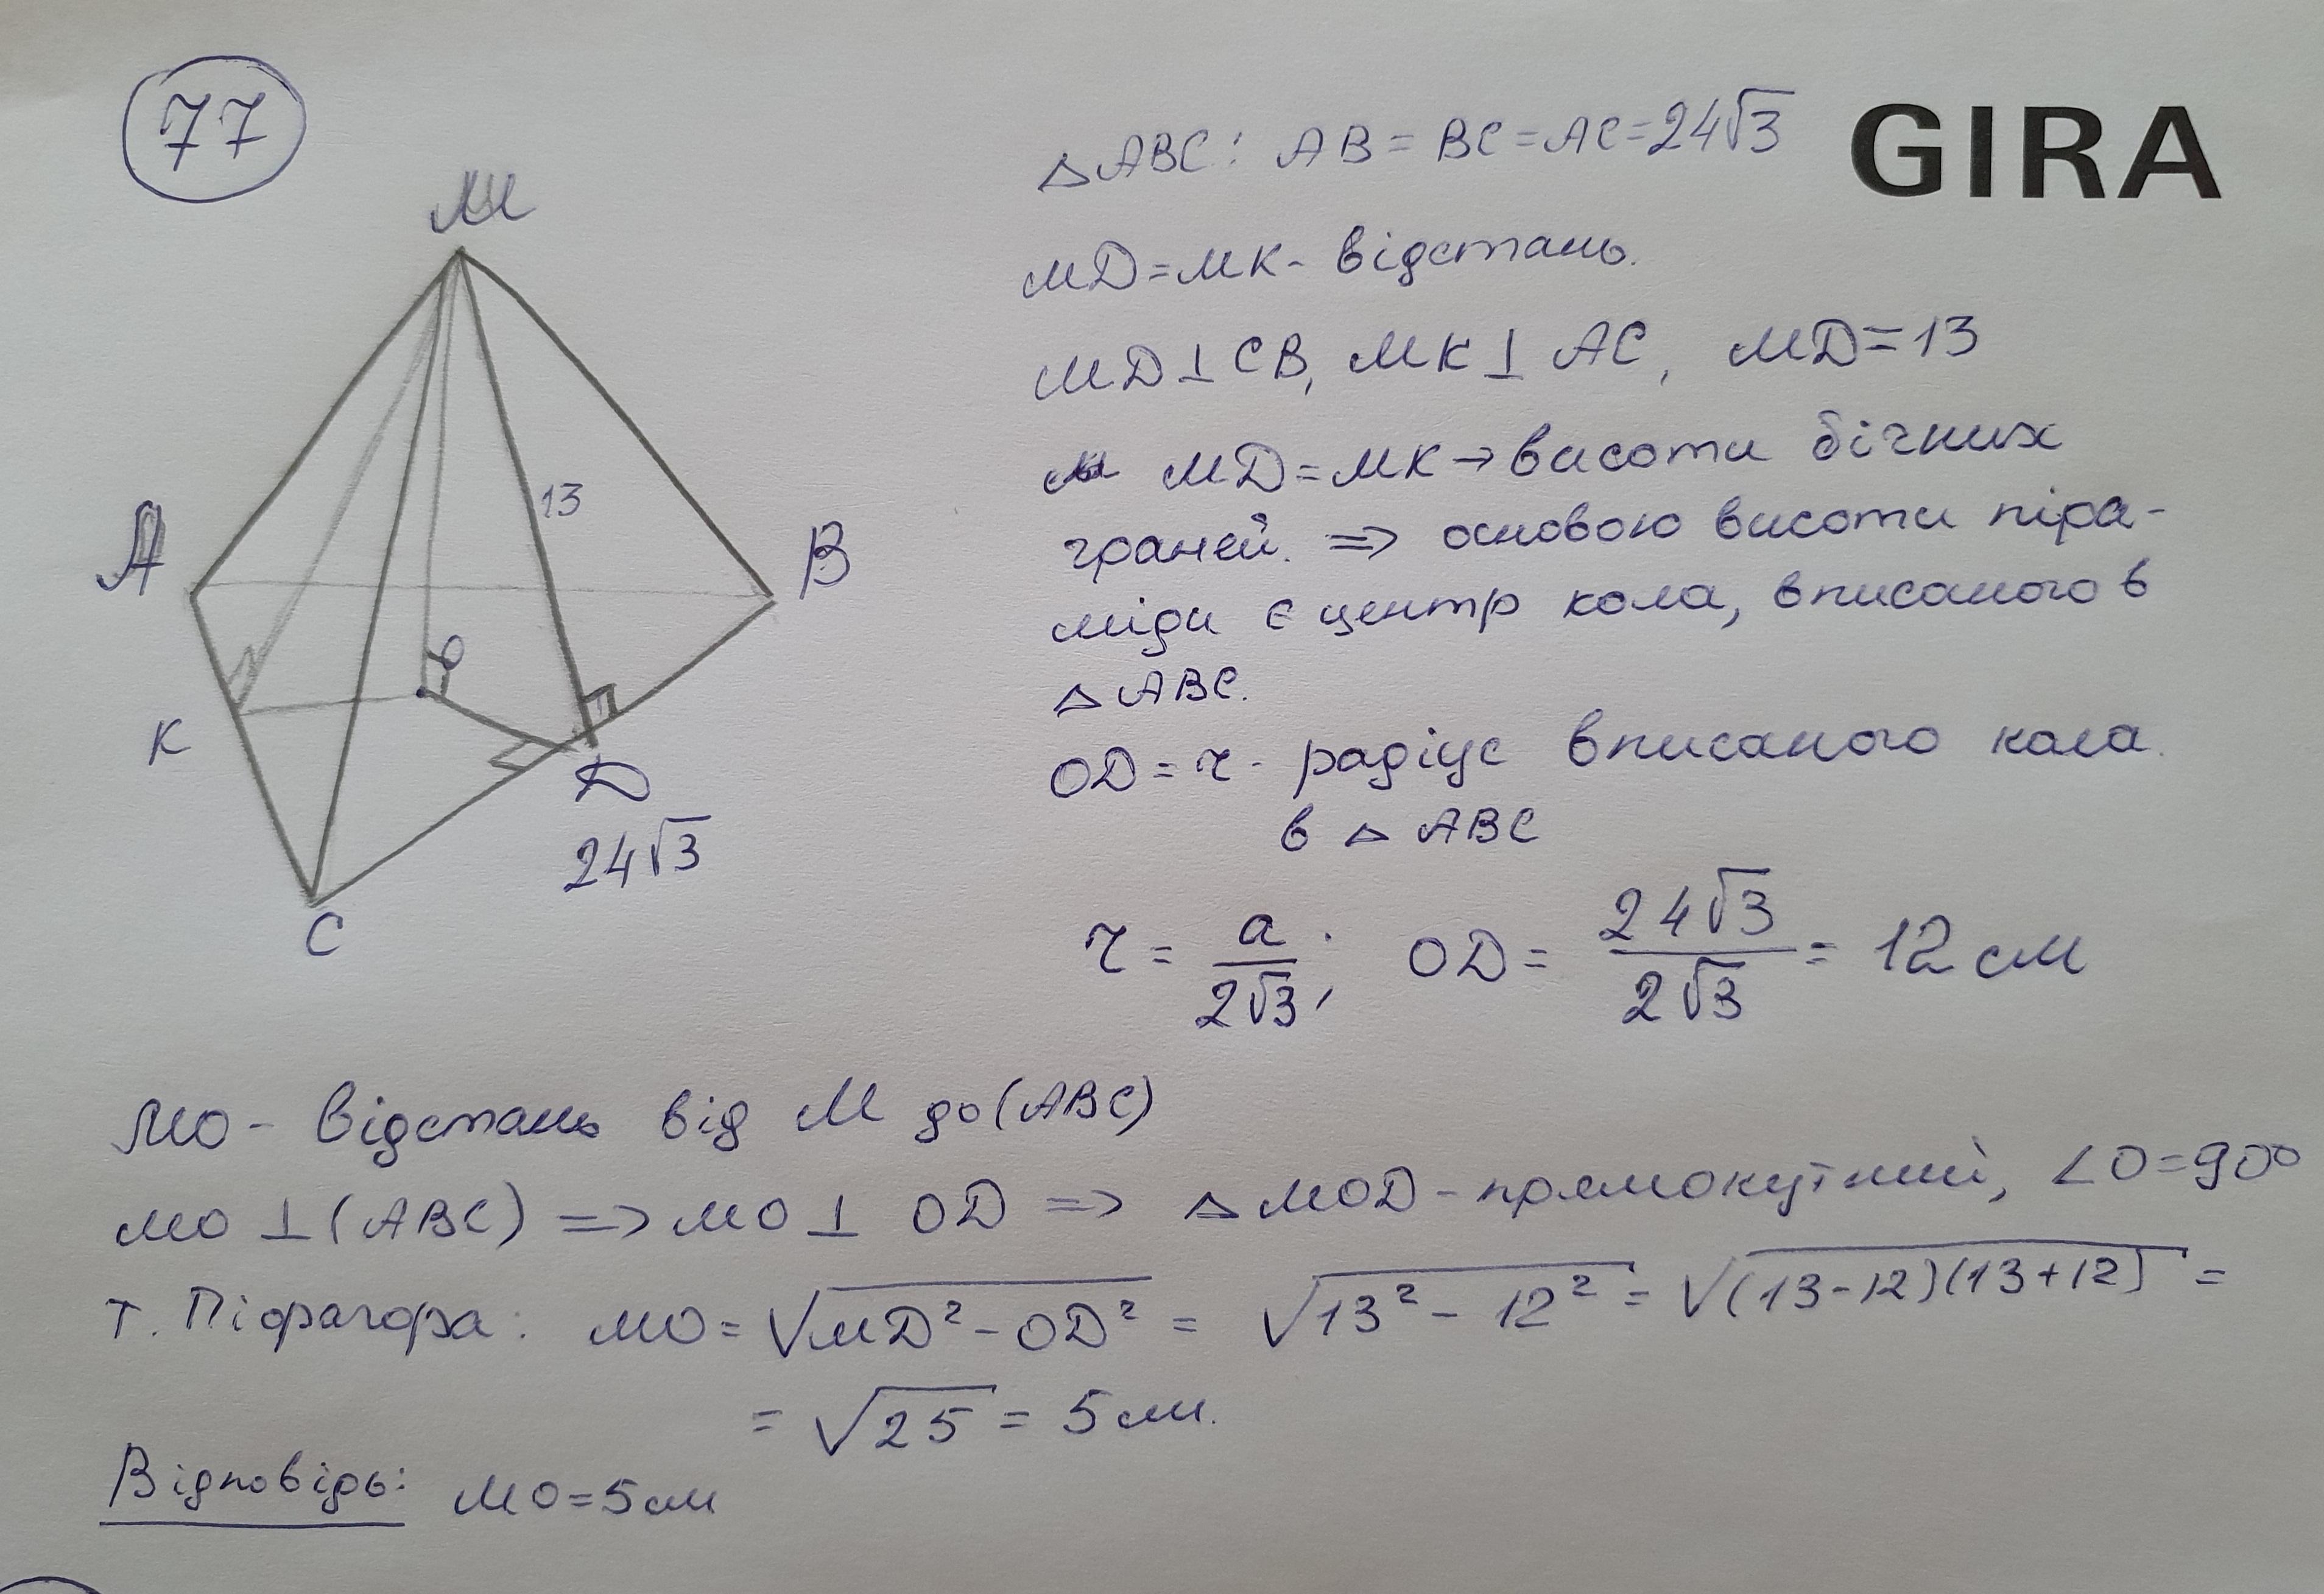 77
GIRA
M
13
A
B
K
O
D
24√3
C
△ABC: AB = BC = AC = 24√3
MD = MK - відстань.
MD ⊥ CB, MK ⊥ AC, MD = 13
MD = MK → висоти бічних
граней. => основою висоти піра-
міди є центр кола, вписаного в
△ABC.
OD = r - радіус вписаного кола
в △ABC
r = a/2√3; OD = 24√3/2√3 = 12 см
MO - відстань від M до (ABC)
MO ⊥ (ABC) => MO ⊥ OD => △MOD - прямокутний, ∠O = 90°
т. Піфагора: MO = √(MD² - OD²) = √(13² - 12²) = √((13-12)(13+12)) =
= √25 = 5 см.
Відповідь: MO = 5 см